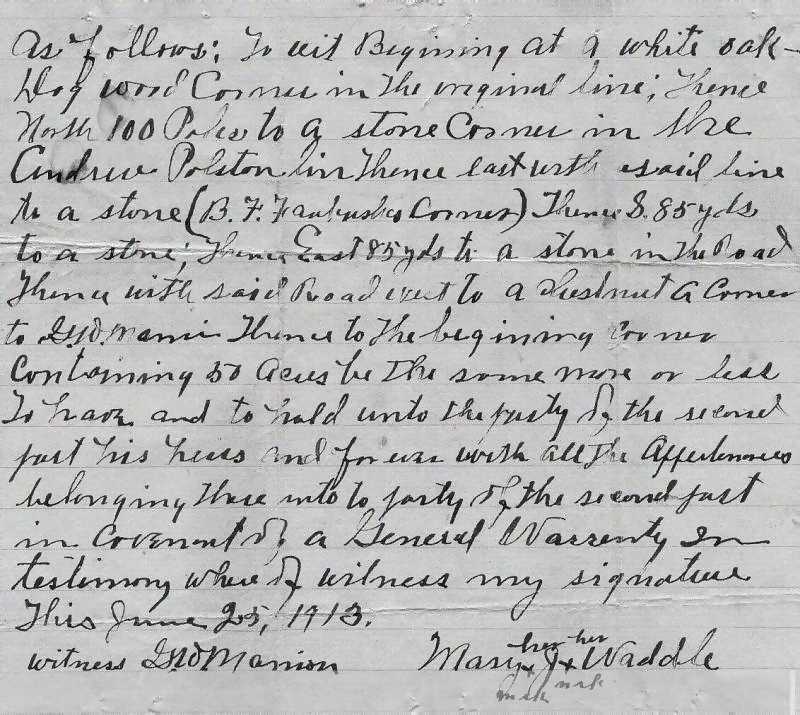 As follows; To wit Begining at a white oak-
Dog wood Corner in the original line; Thence
North 100 Poles to a stone Corner in the
Andrew Polston lin Thence east with said line
to a stone (B. F. Corner) Thence S. 85 yds
to a stone; Thence East 85 yds to a stone in the Road
Thence with said Road west to a Chestnut a Corner
to Thence to the begining corner
Containing 50 Acres be the same more or less
To have and to hold unto the party of the second
part his heirs and forever with all the
belonging there unto to party of the second part
in Covenant of a General Warrenty In
testimony where of witness my signature
This June 25, 1913.
witness Manion
Mary her x J her x Waddle
mark mark